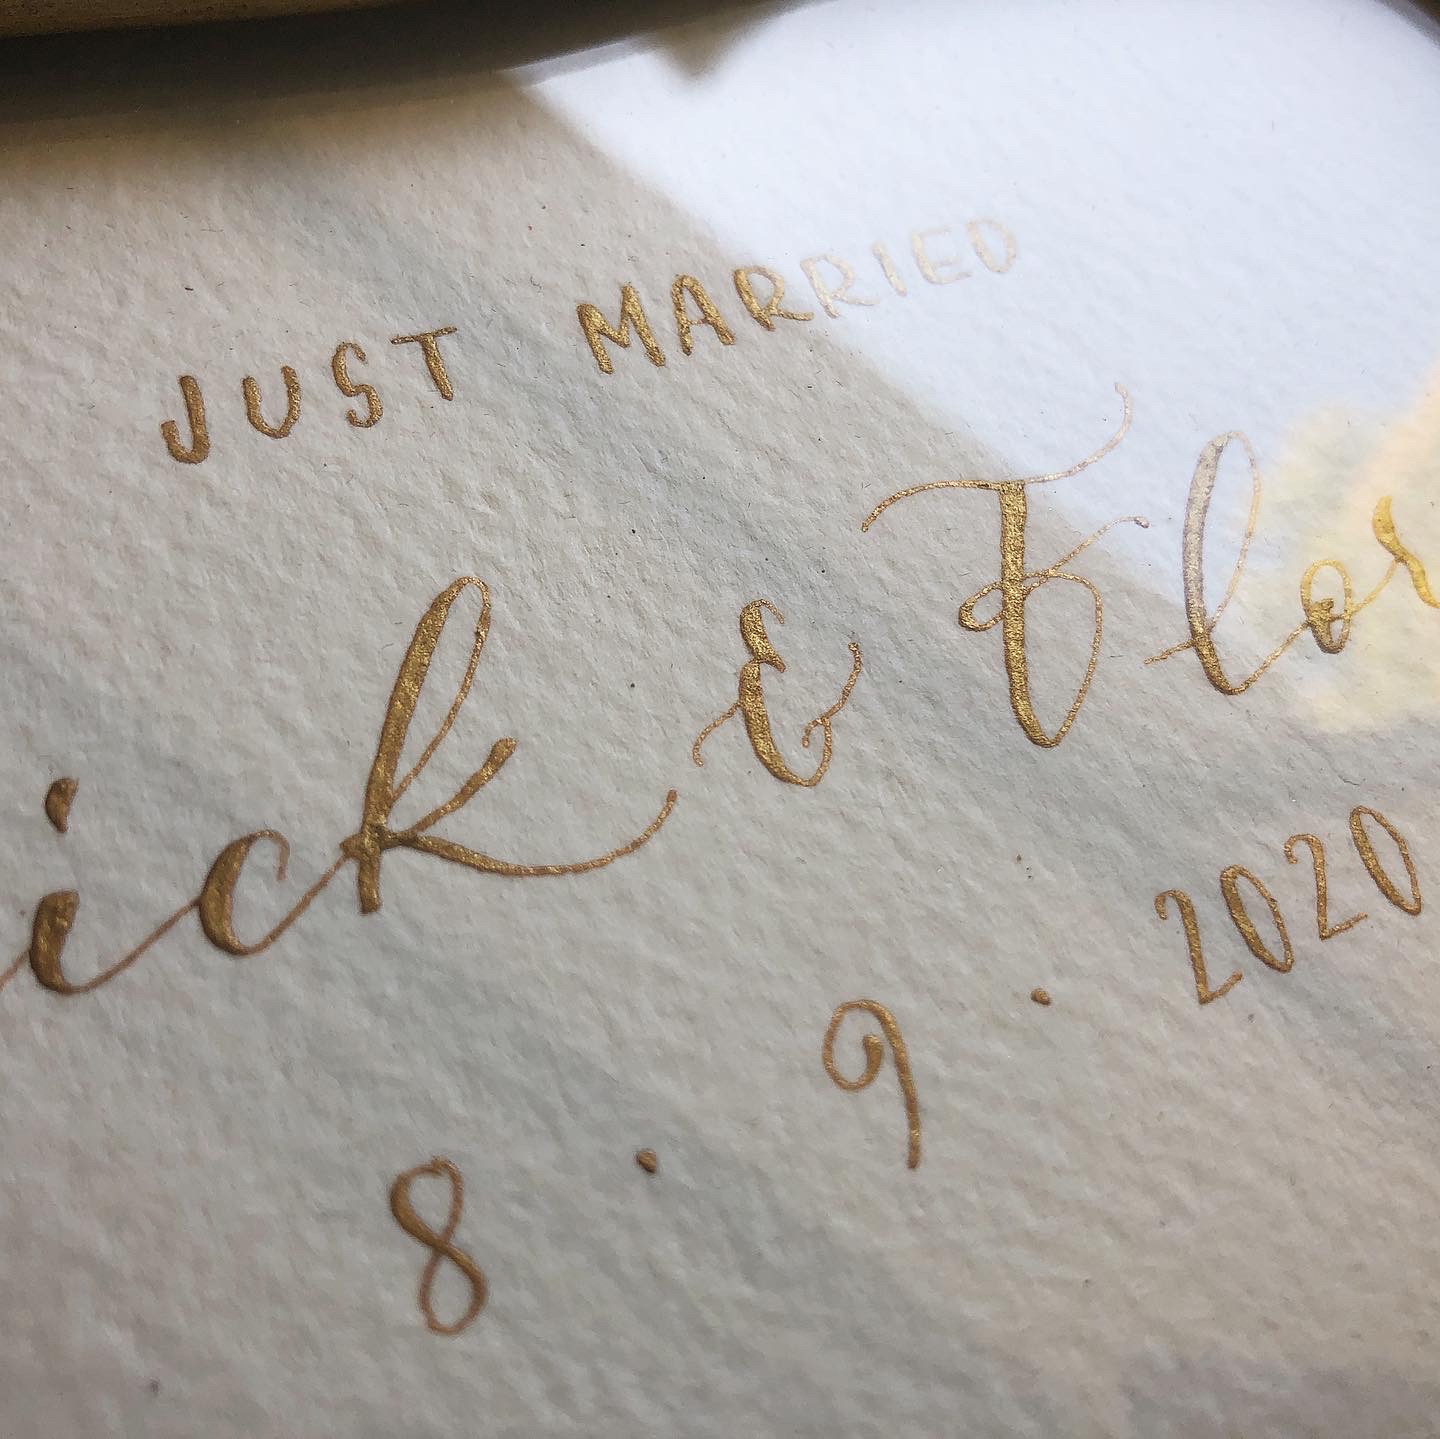 JUST MARRIED
ick & Flor
8 · 9 · 2020